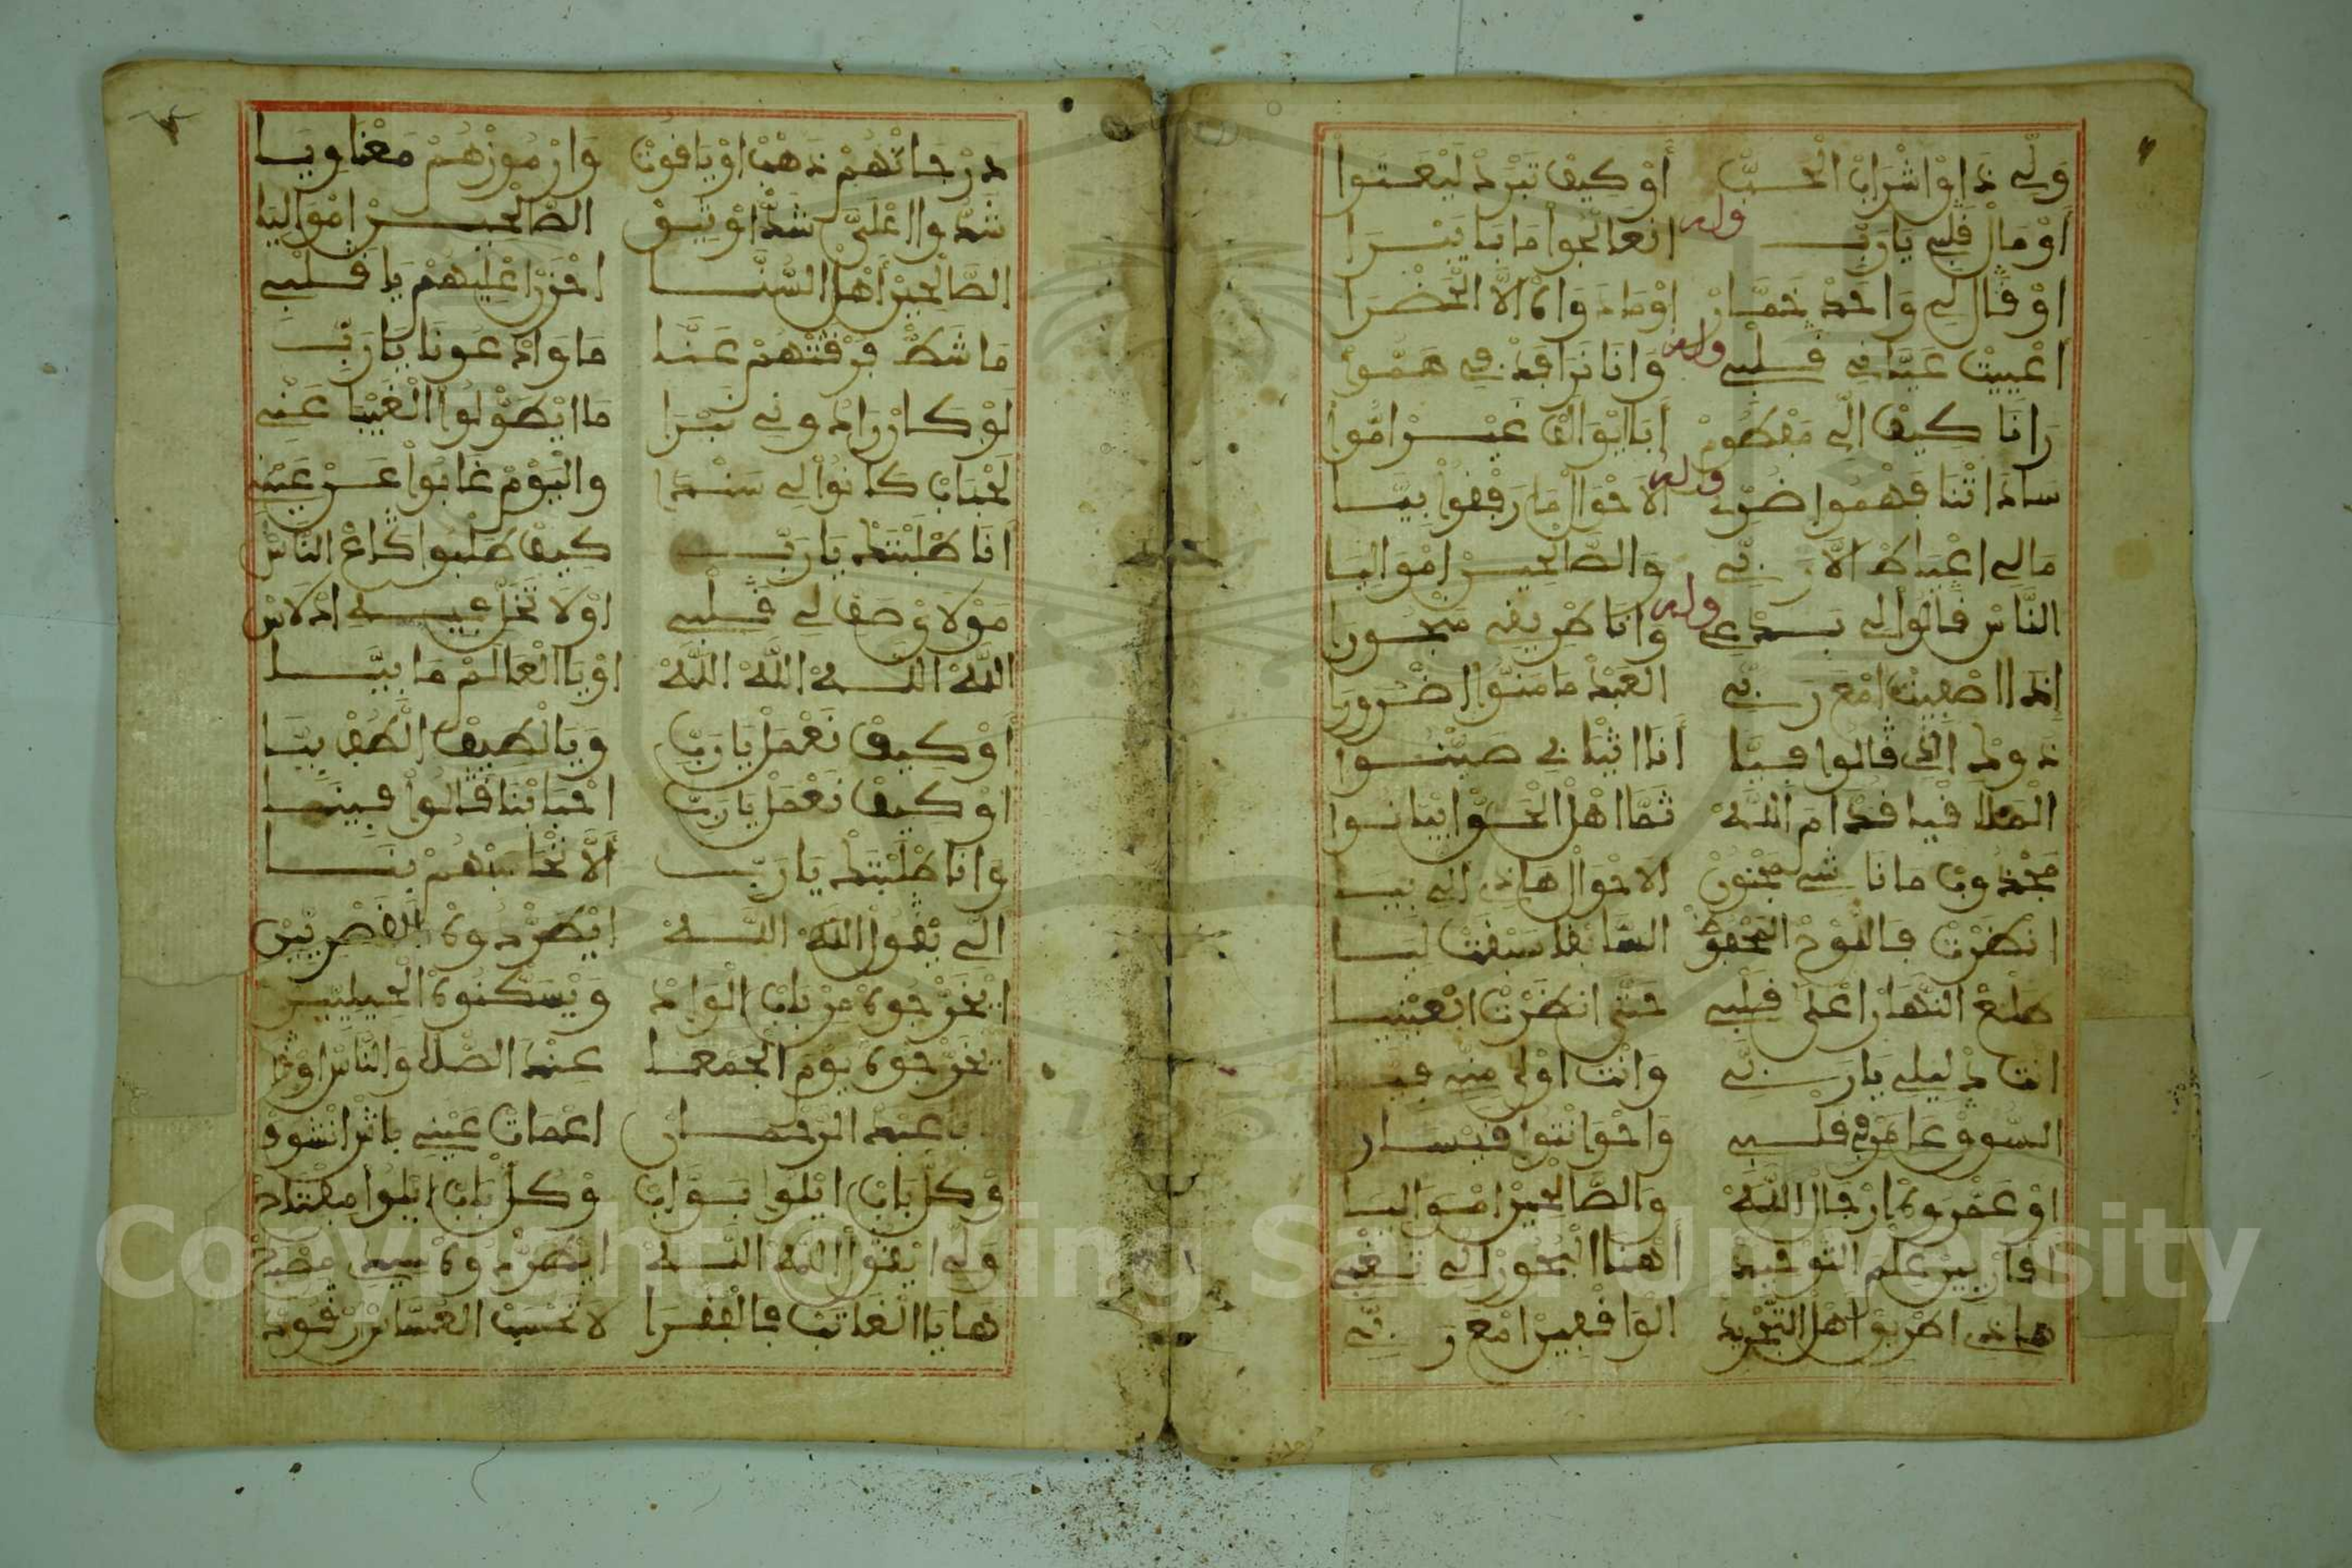 وَلِّي ذَاوْ اشْرَابْ الْحُبّْ أَوْ كِيفْ تَبْرَدْ لَيْعَتُوا
أَوْ مَالْ قَلْبِي يَا رَبِّي وله انْعَالْجُوا مَا بَا يَبْرَا
اوْ قَال لِي وَاحَدْ خَمَّارْ اوْمَا دَوَاكْ الاَّ الْحَضْرَا
اعْيِيتْ عَيَّا فِي قَلْبِي وله وَانَا نَرَافَدْ فِي هَمُّوا
رَانَا كِيفْ الِّي مَفْطُومْ أَبَا يْوَالَفْ غَيْرْ امُّوا
سَادَاتْنَا فَهْمُوا ضُرِّي وله الاَحْوَالْ مَا رَفْقُوا بِيَّا
مَالِي اعْيَاطْ الاَّ رَبِّي وَالصَّالْحِينْ امْوَالِيَا
النَّاسْ قَالُوا لِي بَدْعِي وله وَانَا طَرِيقِي مَجْبُورَا
إِذَا اصْفِيتْ امْعَ رَبِّي الْعَبْدْ مَا مَنُّوا ضْرُورَا
ذَوكْ الِّي قَالُوا فِيَّا أَنَا اثْنَانِي صَيْتُوا
الْمَلاَ فْيَا قدَّامَ اللَّهْ ثَمَّا اهْلْ الْحَقّْ ايْبَانُوا
مَجْذُوبْ مَا نَا شِي مَجْنُونْ الاَحْوَالْ هَاذِي الِي بِيَّا
انْظَرْتْ فَاللُّوحْ الْمَحْفُوظْ السَّابْقَا سَبْقَتْ لِيَّا
طْلَعْ النَّهَارْ اعْلَى قَلْبِي حَتَّى انْظَرْتْ ابْعَيْنِيَا
انْتَ دْلِيلِي يَا رَبِّي وَانْتَ اوْلَى مِنِّي فِيَّا
السُّوقْ عَامَرْ فِي قَلْبِي وَاحْوَانْتُوا قِيْسَار
اوْ عَمْرُوهْ ارْجَالْ اللَّهْ وَالصَّالْحِينْ امْوَالِيَا
عِلْمْ التَّوْحِيدْ أَهْنَا الْبْحُورْ الِّي تَغْبِي
هَاذِي اطْرِيقْ أَهْلْ التَّجْرِيدْ الْوَاقْفِينْ امْعَ رَبِّي
دَرْجَاتْهُمْ ذَهْبْ اوْ يَاقُوتْ وَارْمُوزْهُمْ مَعْنَاوِيَا
شَدُّوا اعْلَيَّ شَدّْ اوْثِيقْ الصَّالْحِينْ امْوَالِيَا
الصَّالْحِينْ أَهْلْ السُّنَّا احْزَنْ اعْلِيهُمْ يَا قَلْبِي
مَا شَطّْ فُرْقَتْهُمْ عَنَّا مَا وَادْعُونَا يَا رَبِّي
لَوْ كَانْ رَادُونِي نَبْرَا مَا ايْطَوّْلُوا الْغَيْبَا عَنِّي
لَحْبَابْ كَانُوا لِي سَنْدَا وَالْيَوْمْ غَابُوا عَنْ عَيْنِي
انَا طْلَبْتَكْ يَا رَبِّي كِيفْ طَلْبُوا قَاعْ النَّاسْ
مَوْلاَيْ صَفِّ لِي قَلْبِي اوْلاَ تْخَلِّ فِيهْ ادْلاَسْ
اللَّهْ اللَّهْ اللَّهْ اللَّهْ اوْ يَا الْعَالَمْ مَا بِيَّا
أَوْ كِيفْ نَعْمَلْ يَا رَبِّي وَيَا لْطِيفْ الْطُفْ بِيَّا
اوْ كِيفْ نَعْمَلْ يَا رَبِّي احْبَابْنَا قَالُوا فِينَا
وَانَا طْلَبْتَكْ يَا رَبِّي أَلاَّ تْحَاسَبْهُمْ بِنَا
الِّي يْقُولْ اللَّهْ اللَّهْ ايْطَرْدُوهْ
ايْخَرْجُوهْ مِنْ بَابْ الْوَادْ وَيْسَكْنُوهْ
ايْخَرْجُوهْ يَوْمَ الْجُمْعَا عِنْدَ الصَّلاَ وَالنَّاسْ اوْقُ
عَبْدْ الرَّحْمَانْ اعْمَاتْ عَيْنِي بَاشْ انْشُوفْ
وْكُلّْ بَابْ ايْلُوا بَوَّابْ وْكُلّْ بَابْ ايْلُوا مَفْتَاحْ
وَلِّي ايْقُولْ اللَّهْ اللَّهْ ايْطَرْدُوهْ
هَا يَا الْعَاتَبْ فَالْفُقَرَا لاَ تَحْسَبْ الْعَسَّاسْ رْقُودْ